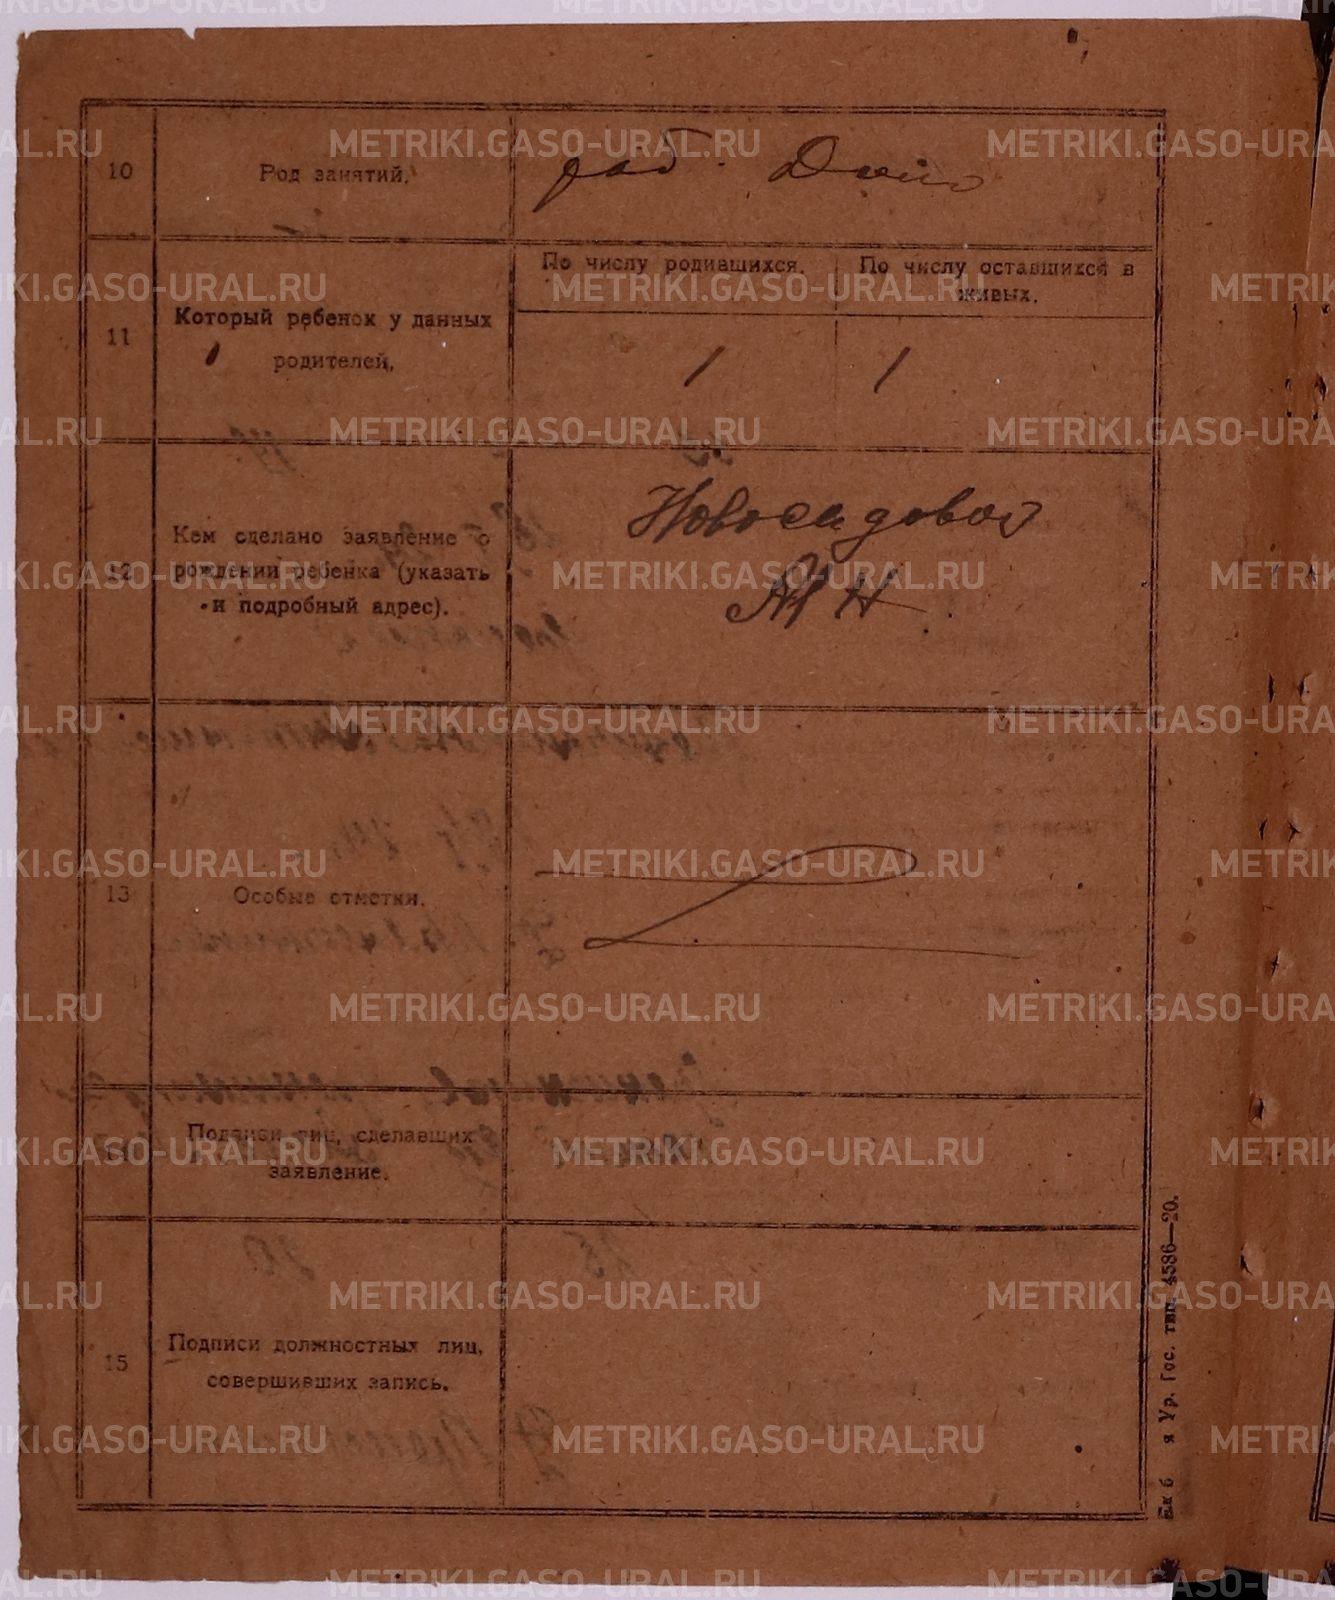 10
Род занятий.
раб.
11
Который ребенок у данных
родителей.
По числу родившихся.
По числу оставшихся в
живых.
1
1
12
Кем сделано заявление о
рождении ребенка (указать
и подробный адрес).
Новосадовой
М Н
13
Особые отметки.
14
Подписи лиц, сделавших
заявление.
15
Подписи должностных лиц,
совершивших запись.
я Ур. Гос. тип. 4586—20.
METRIKI.GASO-URAL.RU